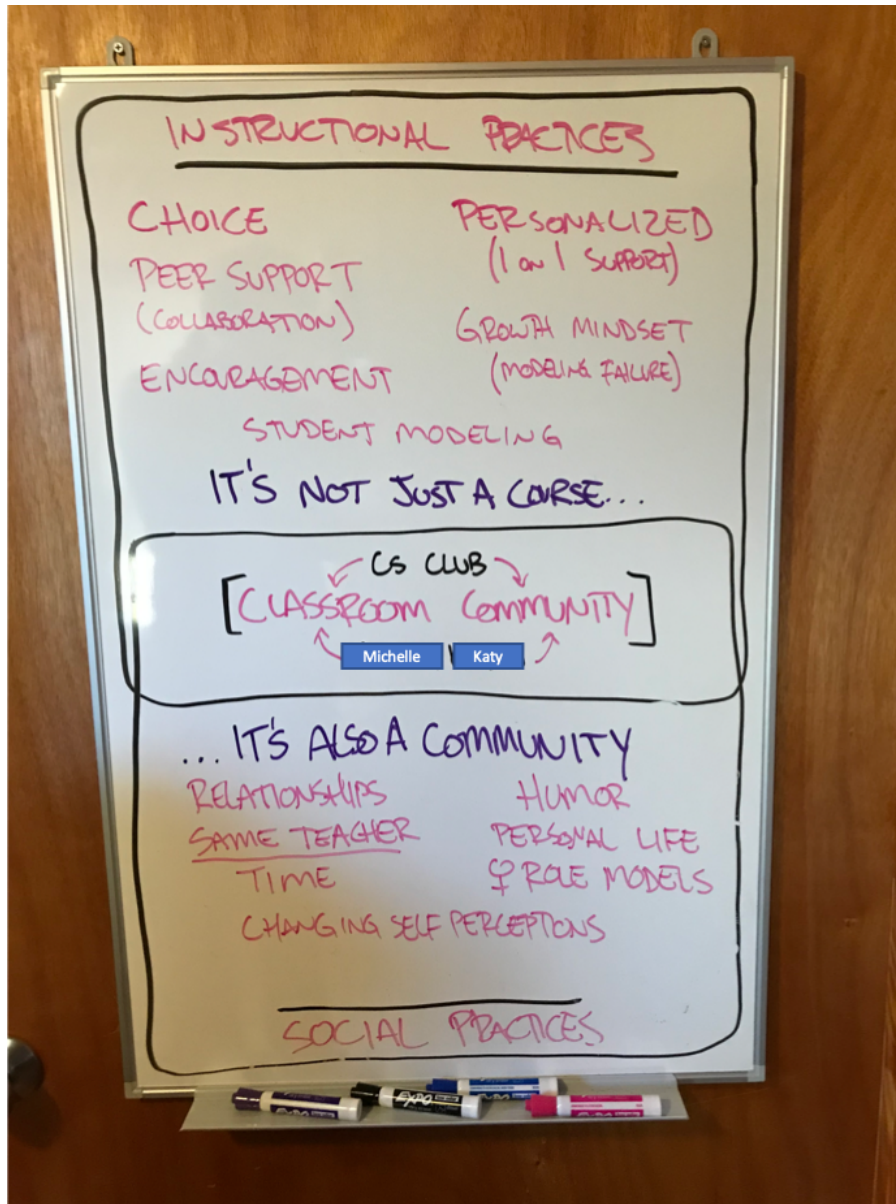 INSTRUCTIONAL PRACTICES
CHOICE
PEER SUPPORT
(COLLABORATION)
ENCOURAGEMENT
PERSONALIZED
(1 ON 1 SUPPORT)
GROWTH MINDSET
(MODELING FAILURE)
STUDENT MODELING
IT'S NOT JUST A COURSE...
CS CLUB
[CLASSROOM COMMUNITY]
Michelle Katy
...IT'S ALSO A COMMUNITY
RELATIONSHIPS
SAME TEACHER
TIME
HUMOR
PERSONAL LIFE
♀ ROLE MODELS
CHANGING SELF PERCEPTIONS
SOCIAL PRACTICES
EXPO
EXPO